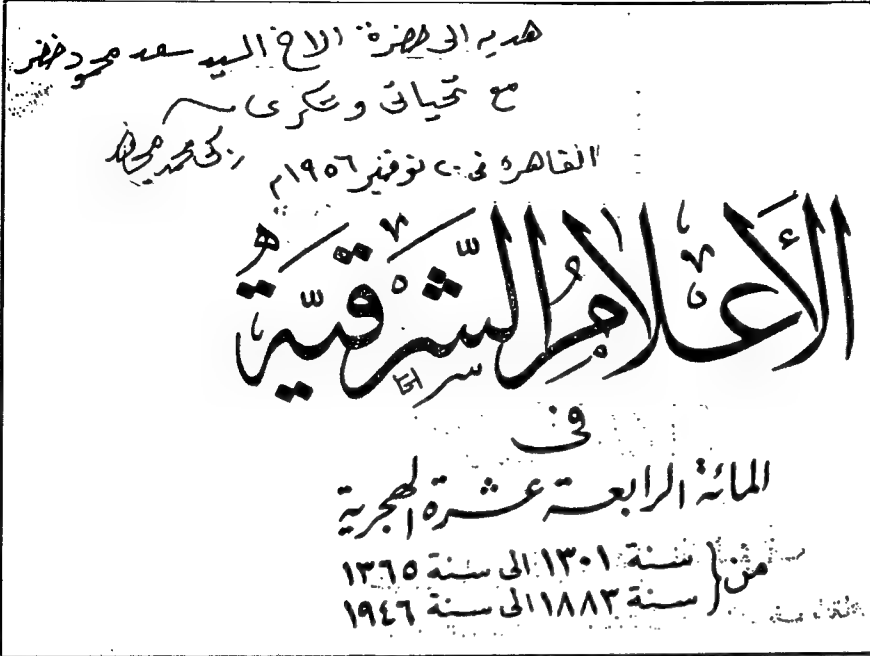 هديه الى حضرة الاخ السيد سعد محمود خضر
مع تحياتى وشكرى
القاهرة فى ٢٠ نوفمبر ١٩٥٦م
زكى محمد مجاهد
الأعلام الشرقية
فى
المائة الرابعة عشرة الهجرية
من { سنة ١٣٠١ الى سنة ١٣٦٥
سنة ١٨٨٣ الى سنة ١٩٤٦